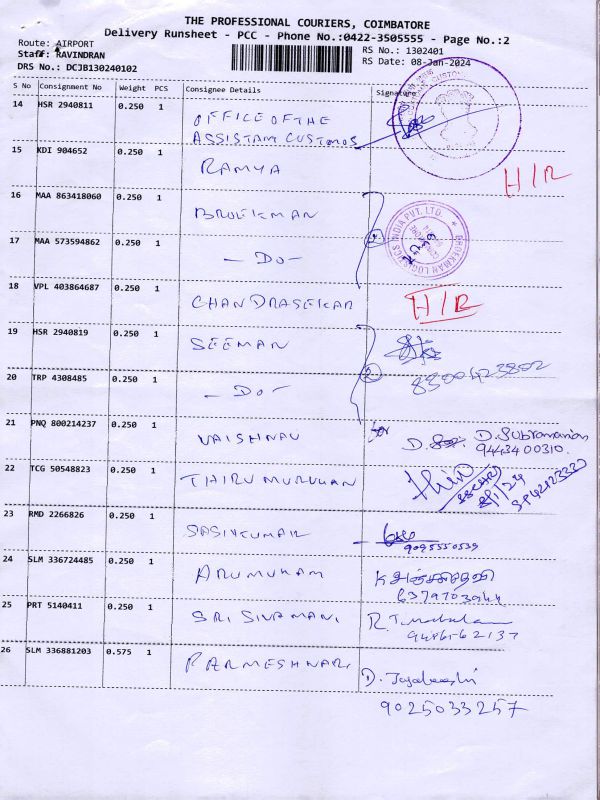 THE PROFESSIONAL COURIERS, COIMBATORE
Delivery Runsheet - PCC - Phone No.:0422-3505555 - Page No.:2
Route: AIRPORT
RS No.: 1302401
Staff: RAVINDRAN
RS Date: 08-Jan-2024
DRS No.: DCJB130240102
S No Consignment No Weight PCS Consignee Details Signature
14 HSR 2940811 0.250 1 OFFICE OF THE
ASSISTANT CUSTOMS
15 KDI 904652 0.250 1 RAMYA H/R
16 MAA 863418060 0.250 1 BROEKMAN
BROEKMAN LOGISTICS INDIA PVT. LTD.
17 MAA 573594862 0.250 1 - DO -
18 VPL 403864687 0.250 1 CHANDRASEKAR H/R
19 HSR 2940819 0.250 1 SEEMAN
20 TRP 4308485 0.250 1 - DO - 8300423802
21 PNQ 800214237 0.250 1 VAISHNAV for D. Subramanian
9443400310.
22 TCG 50548823 0.250 1 THIRUMURUKAN
8/1/24
23 RMD 2266826 0.250 1 SASIKUMAR
9095550539
24 SLM 336724485 0.250 1 ARUMUKAM
25 PRT 5140411 0.250 1 SRI SIVAMANI
26 SLM 336881203 0.575 1 PARMESHWARI D.
9025033257